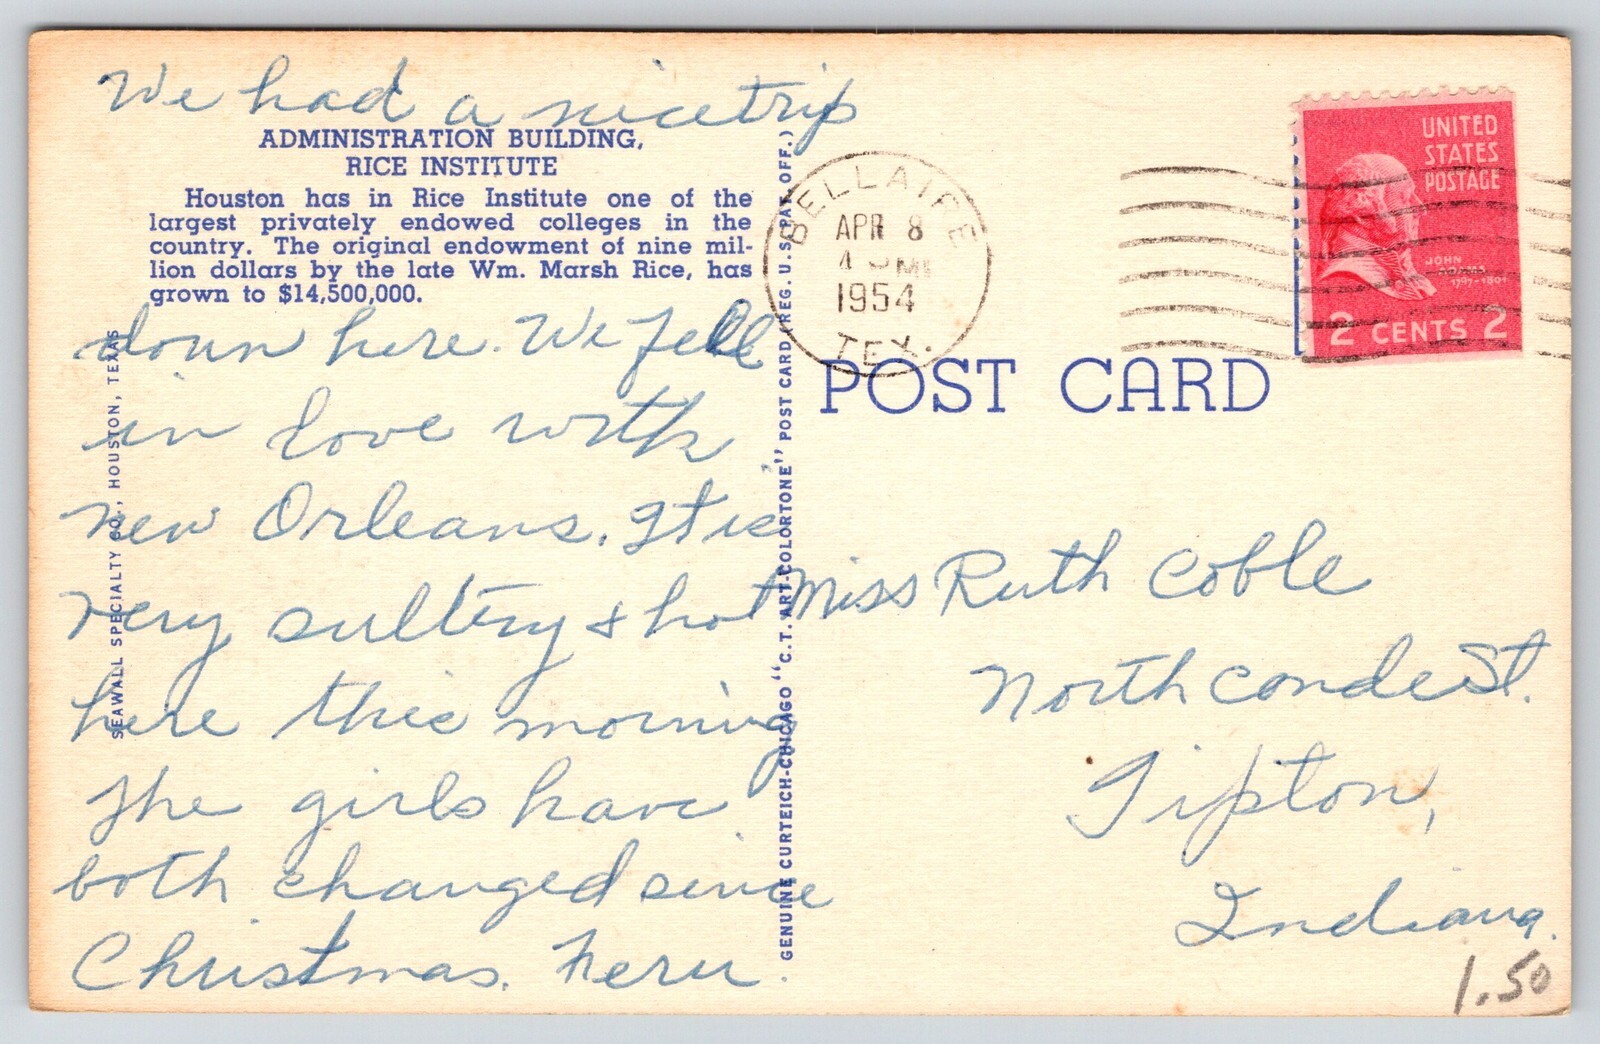 We had a nice trip
ADMINISTRATION BUILDING,
RICE INSTITUTE
Houston has in Rice Institute one of the
largest privately endowed colleges in the
country. The original endowment of nine mil-
lion dollars by the late Wm. Marsh Rice, has
grown to $14,500,000.
down here. We fell
in love with
new Orleans. It is
very sultry & hot
here this morning
The girls have
both changed since
Christmas. Fern
SEAWALL SPECIALTY CO., HOUSTON, TEXAS
GENUINE CURTEICH-CHICAGO "C.T. ART-COLORTONE" POST CARD (REG. U.S. PAT. OFF.)
BELLAIRE
APR 8
PM
1954
TEX.
UNITED
STATES
POSTAGE
JOHN
ADAMS
1797-1801
2 CENTS 2
POST CARD
Miss Ruth Coble
North Conde St.
Tipton,
Indiana.
1.50